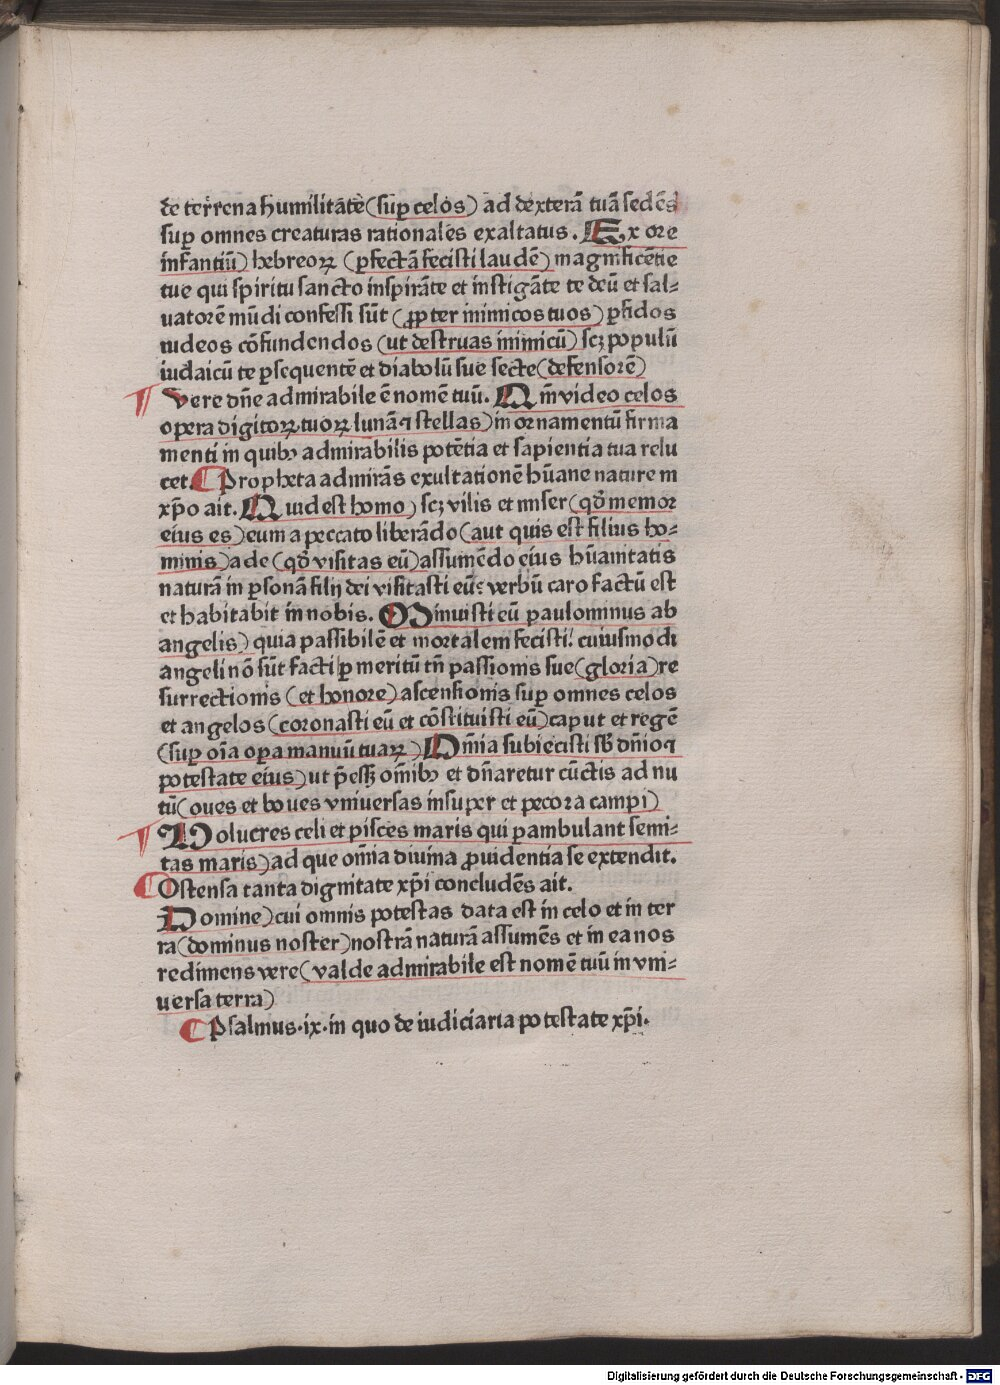 de terrena humilitãte (sup celos) ad dexterã tuã sedẽs
sup omnes creaturas rationales exaltatus. Ex ore
infantiũ) hebreoꝝ (ꝑfectã fecisti laudẽ) magnificẽtie
tue qui spiritu sancto inspirãte et instigãte te deũ et sal⸗
uatorẽ mũdi confessi sũt (ꝓpter inimicos tuos) ꝑfidos
iudeos cõfundendos (ut destruas inimicũ) scꝫ populũ
iudaicũ te ꝑsequentẽ et diabolũ sue secte (defensorẽ)
vere dñe admirabile ẽ nomẽ tuũ. Qm̃ video celos
opera digitoꝝ tuoꝝ lunã ⁊ stellas) in ornamentũ firma
menti in quibꝰ admirabilis potẽtia et sapientia tua relu
cet. Propheta admirãs exultationẽ hũane nature in
xp̃o ait. Quid est homo) scꝫ vilis et miser (qđ memor
eius es) eum a peccato liberãdo (aut quis est filius ho⸗
minis) ade (qđ visitas eũ) assumẽdo eius hũanitatis
naturã in ꝑsonã filij dei visitasti eũ: verbũ caro factũ est
et habitabit in nobis. Minuisti eũ paulominus ab
angelis) quia passibilẽ et mortalem fecisti: cuiusmodi
angeli nõ sũt facti ꝑ meritũ tñ passionis sue (gloria) re
surrectionis (et honore) ascensionis sup omnes celos
et angelos (coronasti eũ et cõstituisti eũ) caput et regẽ
(sup oĩa oꝑa manuũ tuaꝝ) Omĩa subiecisti sb̃ dñio ⁊
potestate eius) ut p̃eẽt om̃ibꝰ et dñaretur cũctis ad nu
tũ (oues et boues vniuersas insuper et pecora campi)
Volucres celi et pisces maris qui ꝑambulant semi⸗
tas maris) ad que om̃ia diuina ꝓuidentia se extendit.
Ostensa tanta dignitate xp̃i concludẽs ait.
Domine) cui omnis potestas data est in celo et in ter
ra (dominus noster) nostrã naturã assumẽs et in ea nos
redimens vere (valde admirabile est nomẽ tuũ in vni⸗
uersa terra)
Psalmus .ix. in quo de iudiciaria potestate xp̃i.
Digitalisierung gefördert durch die Deutsche Forschungsgemeinschaft - DFG